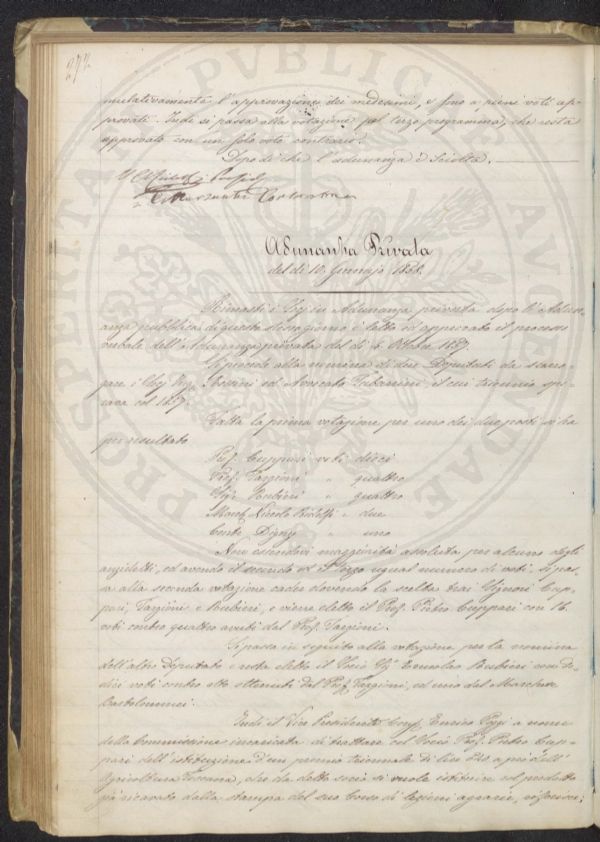 272
mulativamente l'approvazione dei medesimi, e sono a pieni voti ap-
provati. Indi si passa alla votazione pel terzo programma, che resta
approvato con un solo voto contrario.
Dopo di che l'adunanza è sciolta.
Adunanza Privata
del dì 10. Gennajo 1858.
Rimasti i Sigg. in Adunanza privata dopo l'Adu-
nanza pubblica di questo stesso giorno è letto ed approvato il processo
verbale dell'Adunanza privata del dì 4. Ottobre 1857.
Si procede alla nomina di due Deputati da
i Sigg. ed Avvocato il cui triennio spi-
rava col 1857.
Fatta la prima votazione per uno dei due posti si ha
per resultato
Prof. Cuppari voti dieci
Prof. Targioni " quattro
Sig. Rubieri " quattro
March. Niccolò Ridolfi " due
Conte Digny " uno
Non essendovi maggiorità assoluta per alcuno degli
anzidetti, ed avendo il secondo ed il terzo egual numero di voti, si pas-
sa alla seconda votazione cader dovendo la scelta trai Signori Cup-
pari, Targioni e Rubieri, e viene eletto il Prof. Pietro Cuppari con 16.
voti contro quattro avuti dal Prof. Targioni.
Si passa in seguito alla votazione per la nomina
dell'altro Deputato e resta eletto il Socio Sig. Ermolao Rubieri con do-
dici voti contro otto ottenuti dal Prof. Targioni, ed uno dal Marchese
Bartolommei.
Indi il Vice Presidente Cons. Enrico Poggi a nome
della Commissione incaricata di trattare col Socio Prof. Pietro Cup-
pari dell'istituzione d'un premio triennale di Lire a prò dell'
Agricoltura Toscana, che da detto socio si vuole istituire col prodotto
già ricavato dalla stampa del suo Corso di lezioni agrarie, riferisce;
PROSPERITATI PUBLICAE AUGENDAE